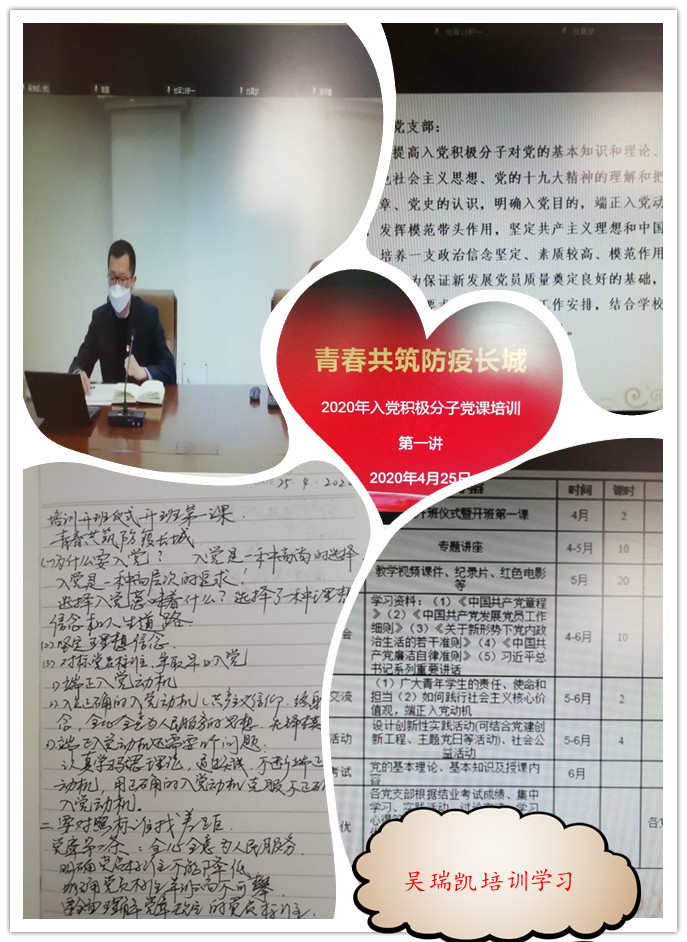 党支部：
提高入党积极分子对党的基本知识和理论、
社会主义思想、党的十九大精神的理解和把
章、党史的认识，明确入党目的，端正入党动
发挥模范带头作用，坚定共产主义理想和中国
培养一支政治信念坚定、素质较高、模范作用
为保证新发展党员质量奠定良好的基础，
工作安排，结合学校
青春共筑防疫长城
2020年入党积极分子党课培训
第一讲
2020年4月25日
25.4.202
培训开班仪式开班第一课
青春共筑防疫长城
(一)为什么要入党？ 入党是一种高尚的选择
入党是一种高层次的追求！
选择入党意味着什么？选择了一种理想
信念和人生道路
(2) 坚定理想信念
(3) 对标党员标准，争取早日入党
1) 端正入党动机
2) 入党正确的入党动机
念，全心全意为人民服务的思想
3) 端正入党动机还需要
个问题
认真学习
理论，通过
不断端正
动机，用正确的入党动机克服不正确
入党动机.
二、要对照标准找差距.
党章第二条：全心全意为人民服务
明确党员标准不能降低
明确党员标准
高不可攀
党章
的党员标准.
时间 课时
开班仪式暨开班第一课 4月 2
专题讲座 4-5月 10
教学视频课件、纪录片、红色电影等 5月 20
学习资料：（1）《中国共产党章程
》（2）《中国共产党发展党员工作
细则》（3）《关于新形势下党内政
治生活的若干准则》（4）《中国共
产党廉洁自律准则》（5）习近平总
书记系列重要讲话
会 4-6月 10
交流
（1）广大青年学生的责任、使命和
担当（2）如何践行社会主义核心价
值观，端正入党动机
5-6月 2
活动
设计创新性实践活动(可结合党建创
新工程、主题党日等活动)、社会公
益活动
5-6月 4
考试
党的基本理论、基本知识及授课内
容
6月
优
各党支部根据结业考试成绩、集中
学习、实践活动
学习
心得
各党
吴瑞凯培训学习